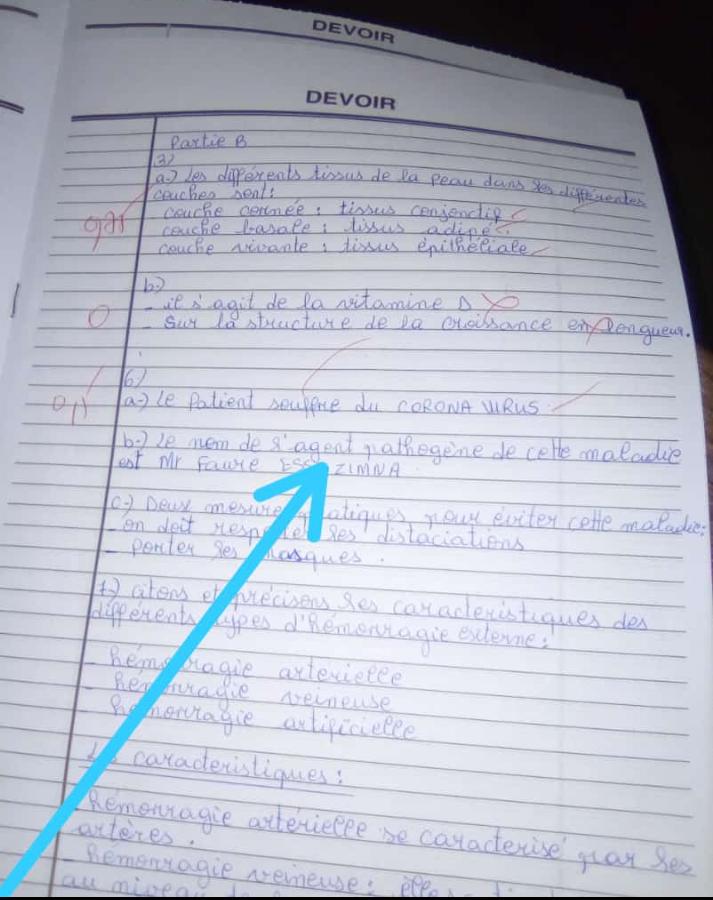 DEVOIR
DEVOIR
Partie B
3)
a-) Les différents tissus de la peau dans ses différentes
couches sont:
couche cornée : tissus conjonctif
couche basale : tissus adipé
couche vivante : tissus épithéliale
b-)
- il s'agit de la vitamine D
- Sur la structure de la croissance en longueur.
0
6)
a-) Le Patient souffre du CORONA VIRUS
b-) Le nom de l'agent pathogène de cette maladie
est Mr Faure ZIMNA
c-) Deux mesures pratiques pour éviter cette maladie:
- on doit respecter les distaciations
- porter les masques .
7-) citons et précisons les caracteristiques des
différents types d'hémorragie externe :
- hémorragie arterielle
- hémorragie veineuse
- hémorragie artificielle
Les caracteristiques :
- hémorragie artérielle se caracterisé par les
artères .
- hémorragie veineuse :
au niveau de